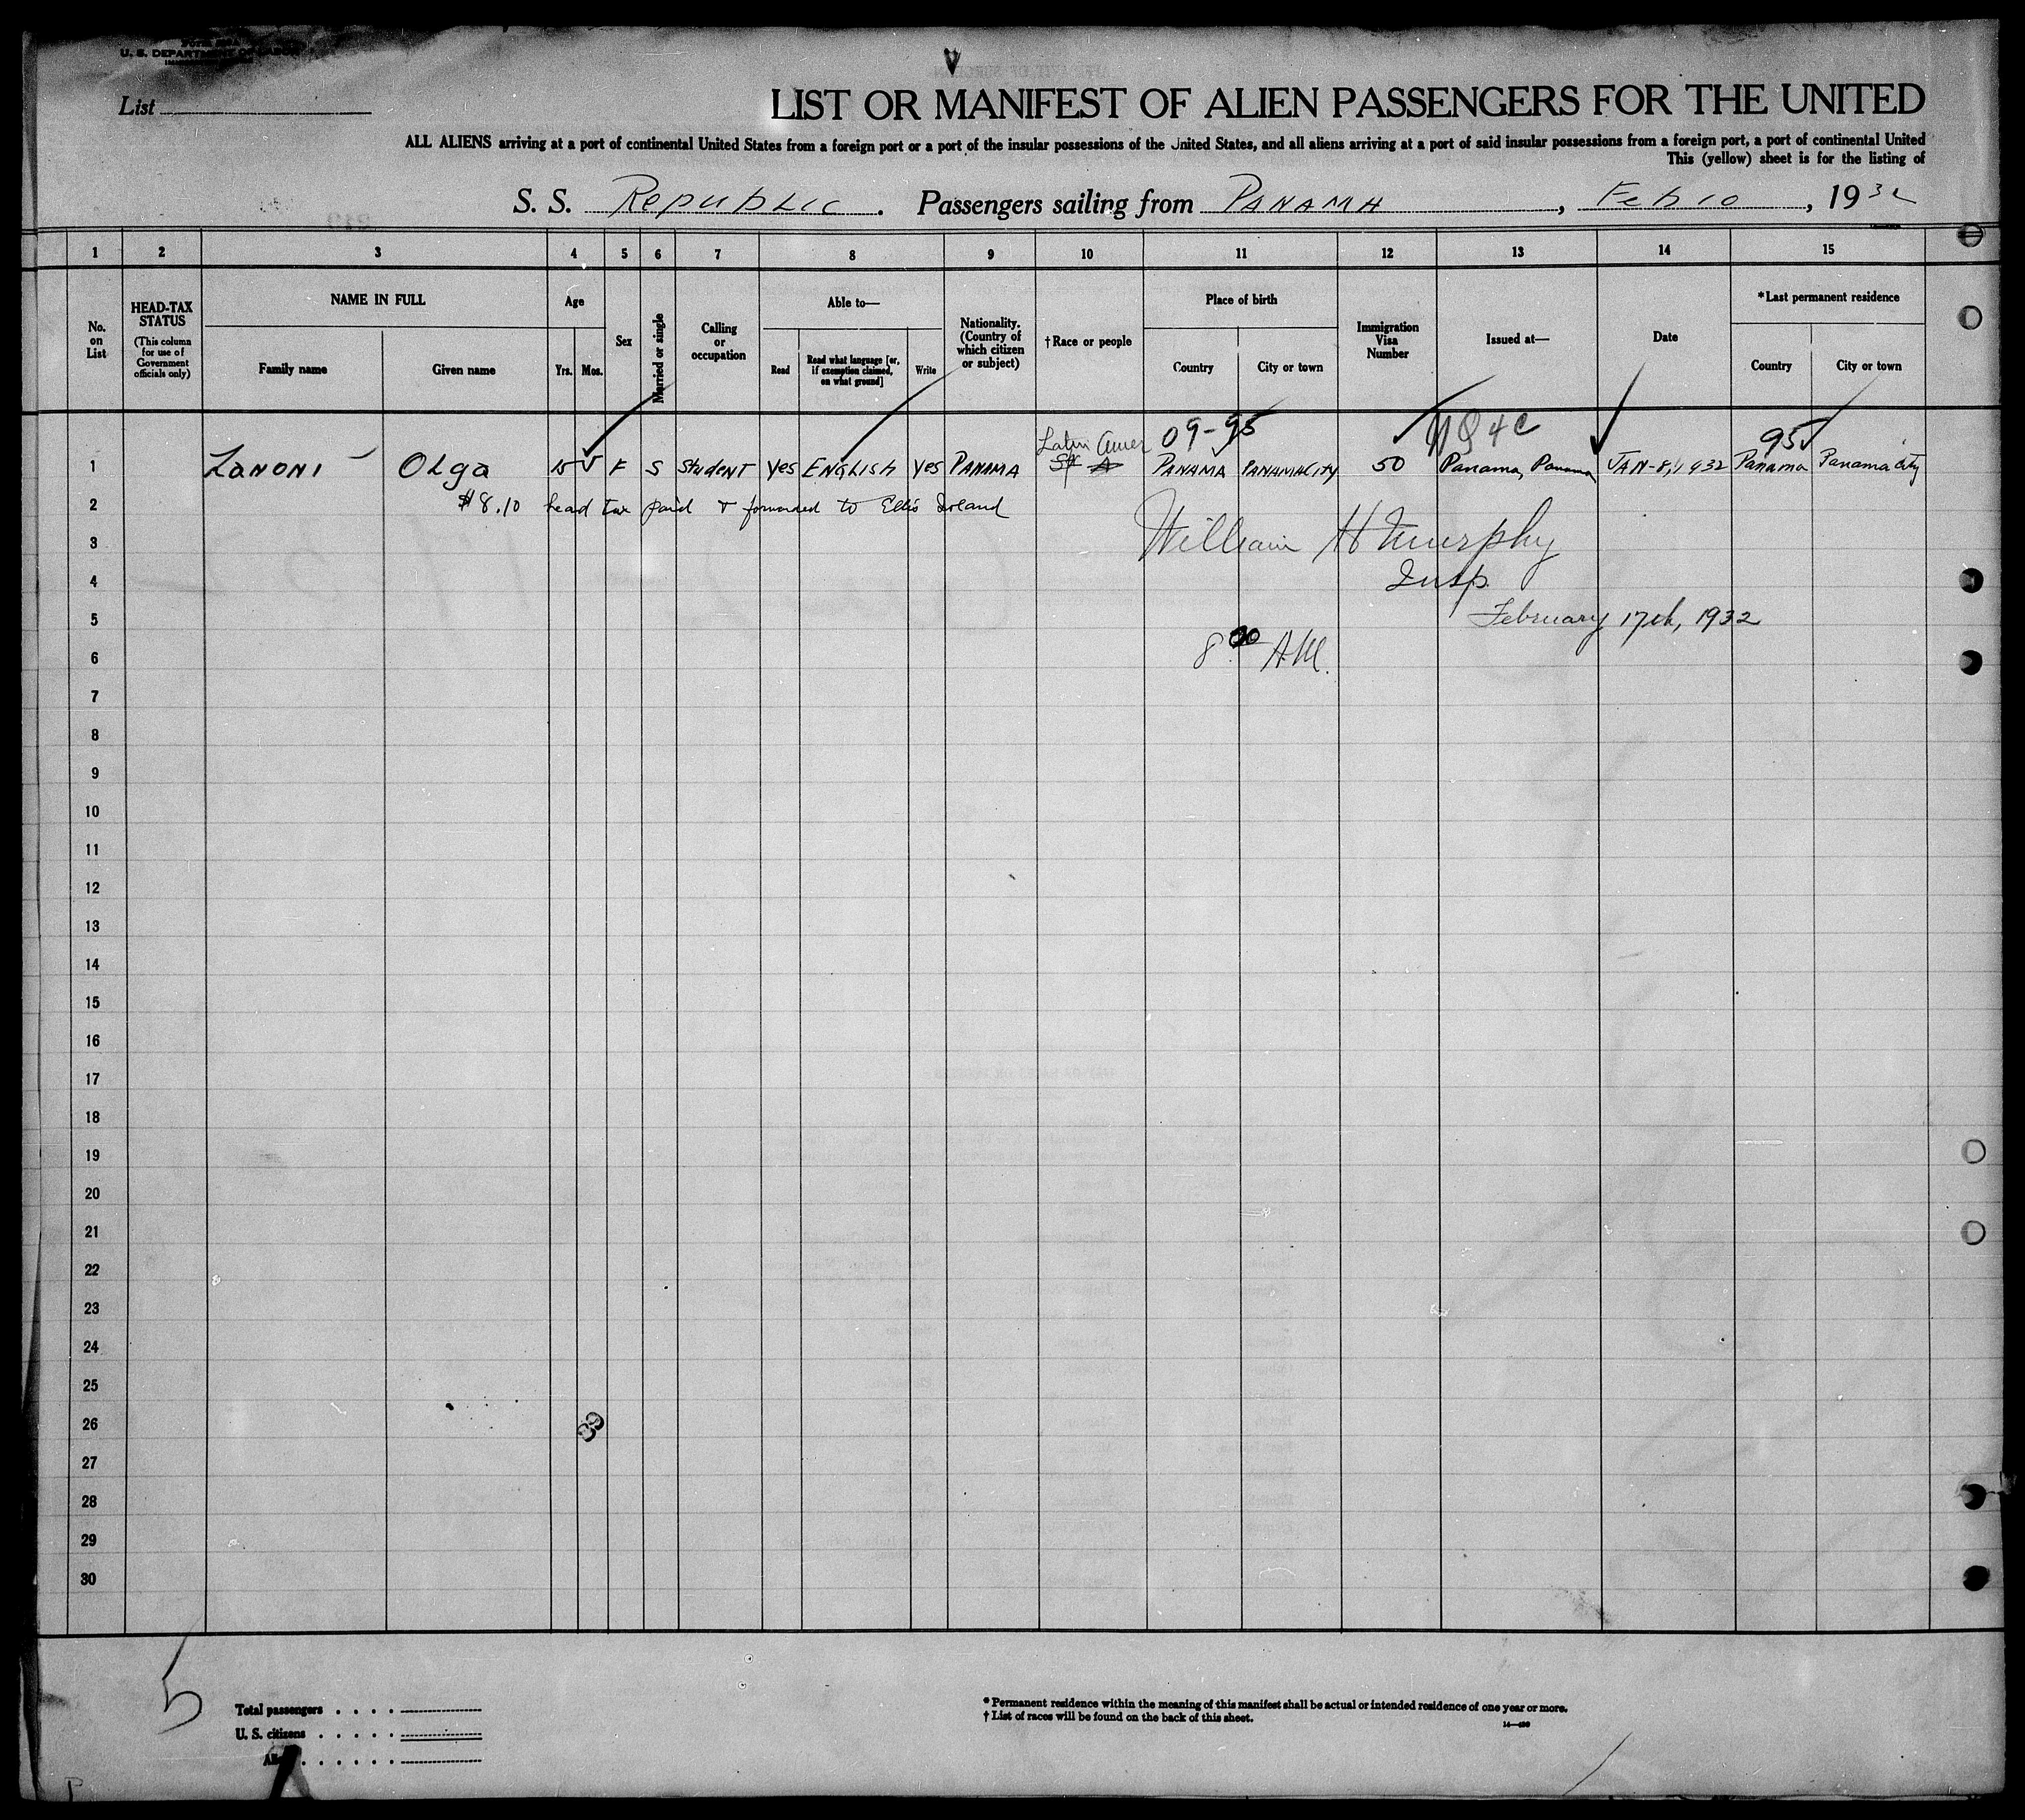 U. S. DEPARTMENT OF LABOR
List
LIST OR MANIFEST OF ALIEN PASSENGERS FOR THE UNITED
ALL ALIENS arriving at a port of continental United States from a foreign port or a port of the insular possessions of the United States, and all aliens arriving at a port of said insular possessions from a foreign port, a port of continental United
This (yellow) sheet is for the listing of
S. S. Republic. Passengers sailing from PANAMA, Feb 10, 1932
1 2 3 4 5 6 7 8 9 10 11 12 13 14 15
No. on List
HEAD-TAX STATUS
(This column for use of Government officials only)
NAME IN FULL
Family name
Given name
Age
Yrs.
Mos.
Sex
Married or single
Calling or occupation
Able to—
Read
Read what language [or, if exemption claimed, on what ground]
Write
Nationality. (Country of which citizen or subject)
† Race or people
Place of birth
Country
City or town
Immigration Visa Number
Issued at—
Date
*Last permanent residence
Country
City or town
Latin Amer 09-95 NQ 4C 95
1 Zanoni Olga 15 F S Student yes ENGLISH yes PANAMA PANAMA PANAMACITY 50 Panama, Panama JAN-8, 1932 Panama Panama City
2 $8.10 head tax paid & forwarded to Ellis Island
3 William H Murphy
4 Insp.
5 February 17th, 1932
6 8 00 AM.
7
8
9
10
11
12
13
14
15
16
17
18
19
20
21
22
23
24
25
26
27
28
29
30
39
5
Total passengers
U. S. citizens
* Permanent residence within the meaning of this manifest shall be actual or intended residence of one year or more.
† List of races will be found on the back of this sheet.